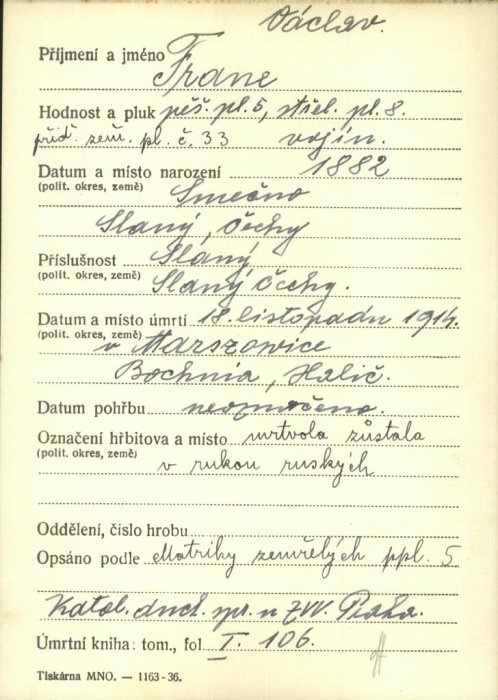 Václav.
Příjmení a jméno Frane
Hodnost a pluk pěš. pl. 5, střel. pl. 8.
přiď. zeň. pl. č. 33 vojín.
Datum a místo narození 1882
(polit. okres, země) Smečno
Slaný, Čechy
Příslušnost Slaný
(polit. okres, země) Slaný Čechy.
Datum a místo úmrtí 18. listopadu 1914.
(polit. okres, země) v Marszowice
Bochnia, Halič.
Datum pohřbu neoznačeno.
Označení hřbitova a místo mrtvola zůstala
(polit. okres, země) v rukou ruských
Oddělení, číslo hrobu
Opsáno podle Matriky zemřelých ppl. 5
Katol. duch. spr. u ZVV. Praha.
Úmrtní kniha: tom., fol I. 106.
Tiskárna MNO. — 1163-36.